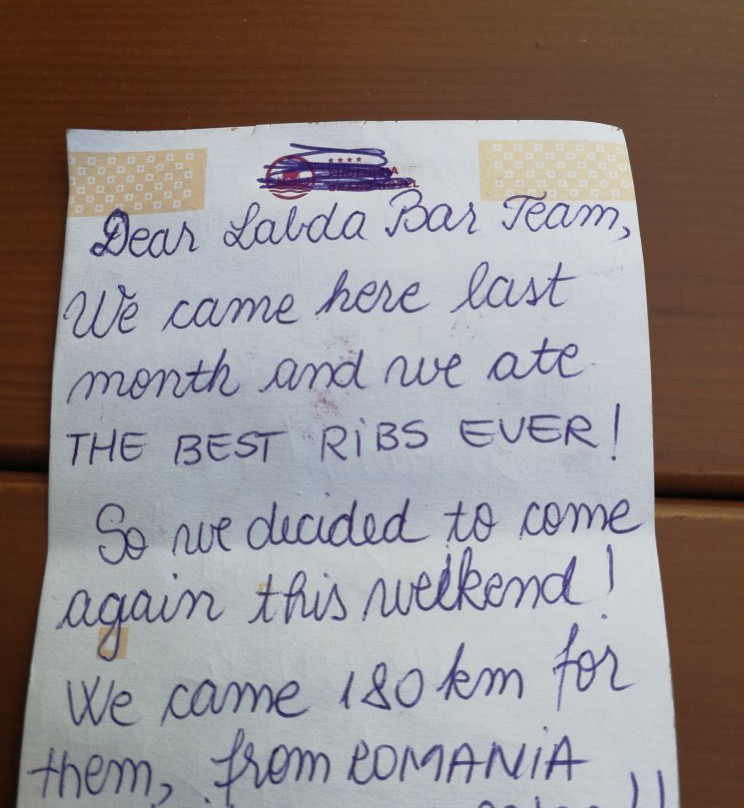 Dear Labda Bar Team,
We came here last
month and we ate
THE BEST RiBS EVER!
So we decided to come
again this weekend!
We came 180 km for
them, from ROMANiA